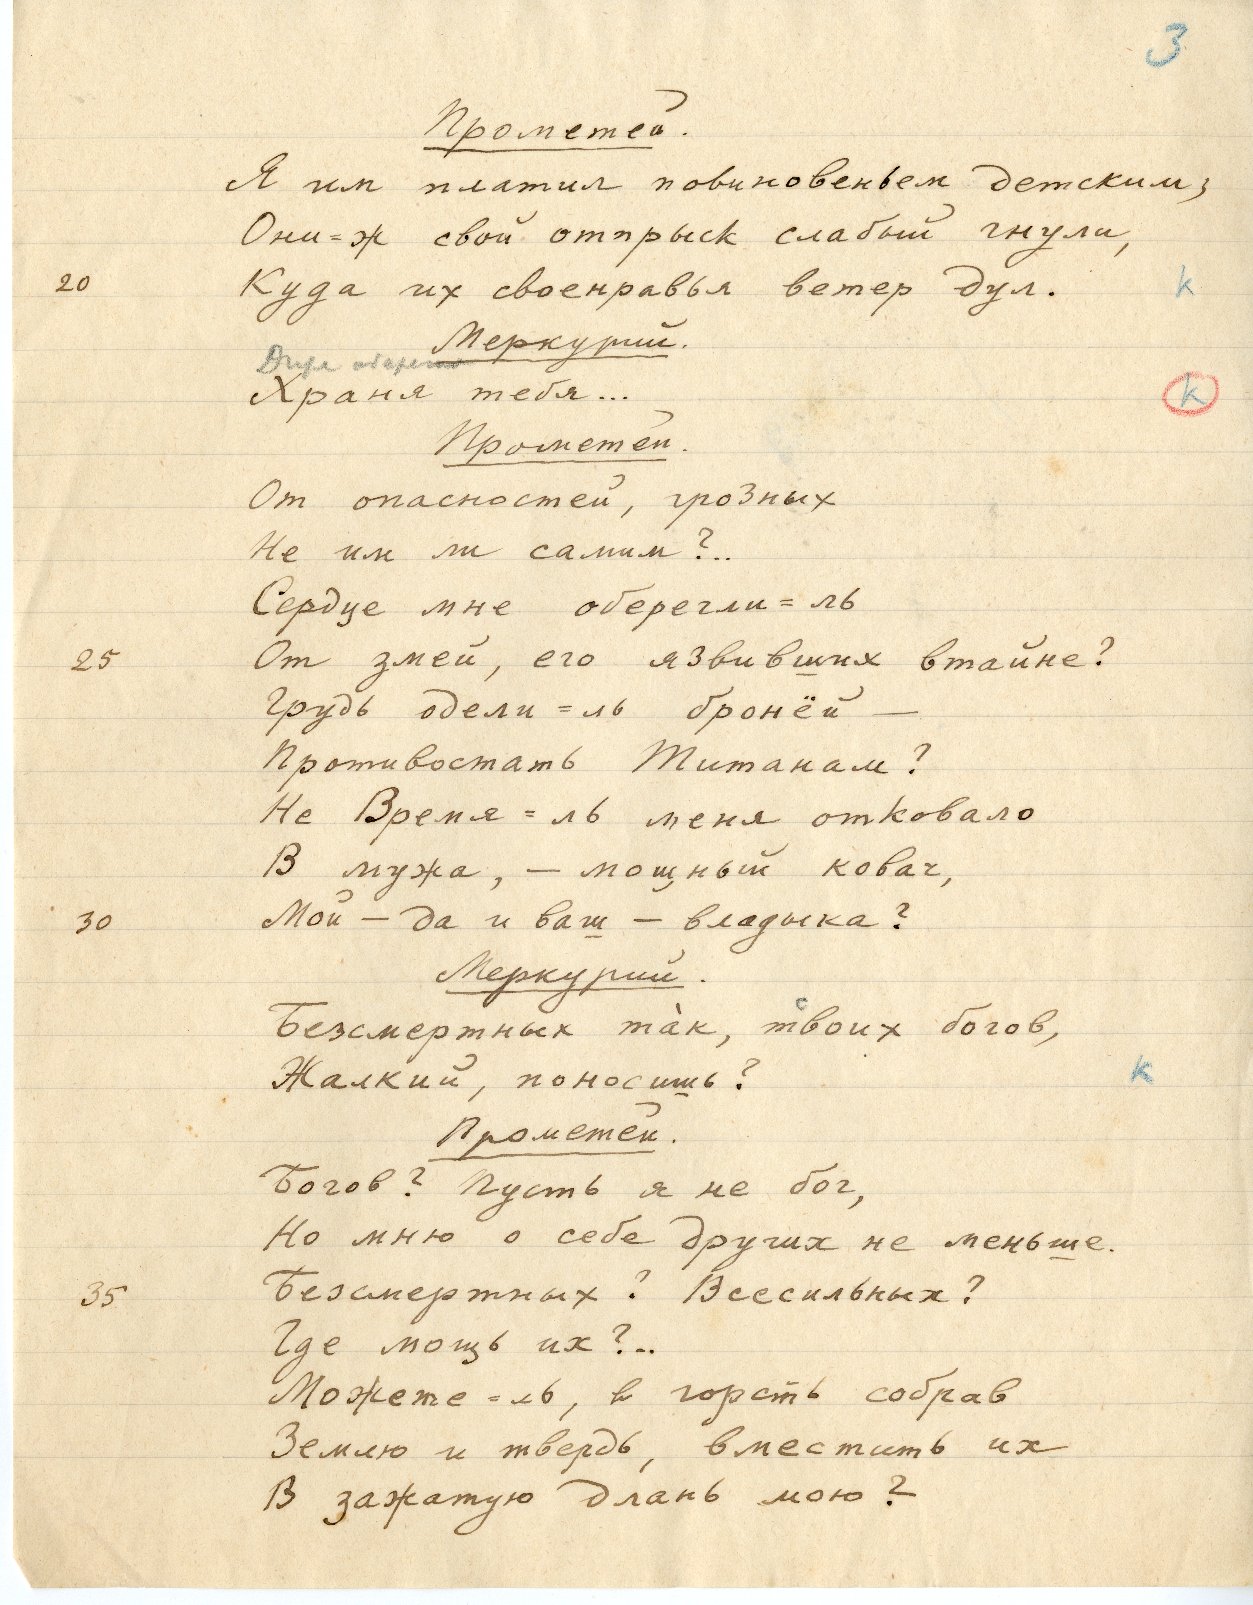 3
Прометей.
Я им платил повиновеньем детским;
Они=ж свой отпрыск слабый гнули,
20 Куда их своенравья ветер дул. к
Меркурий.
Храня тебя... к
Прометей.
От опасностей, грозных
Не им ли самим?..
Сердце мне оберегли=ль
25 От змей, его язвивших втайне?
Грудь одели=ль бронёй —
Противостать Титанам?
Не Время=ль меня отковало
В мужа, — мощный ковач,
30 Мой — да и ваш — владыка?
Меркурий.
с
Безсмертных та̀к, твоих богов,
Жалкий, поносишь? к
Прометей.
Богов? Пусть я не бог,
Но мню о себе других не меньше.
35 Безсмертных? Всесильных?
Где мощь их?..
Можете=ль, в горсть собрав
Землю и твердь, вместить их
В зажатую длань мою?